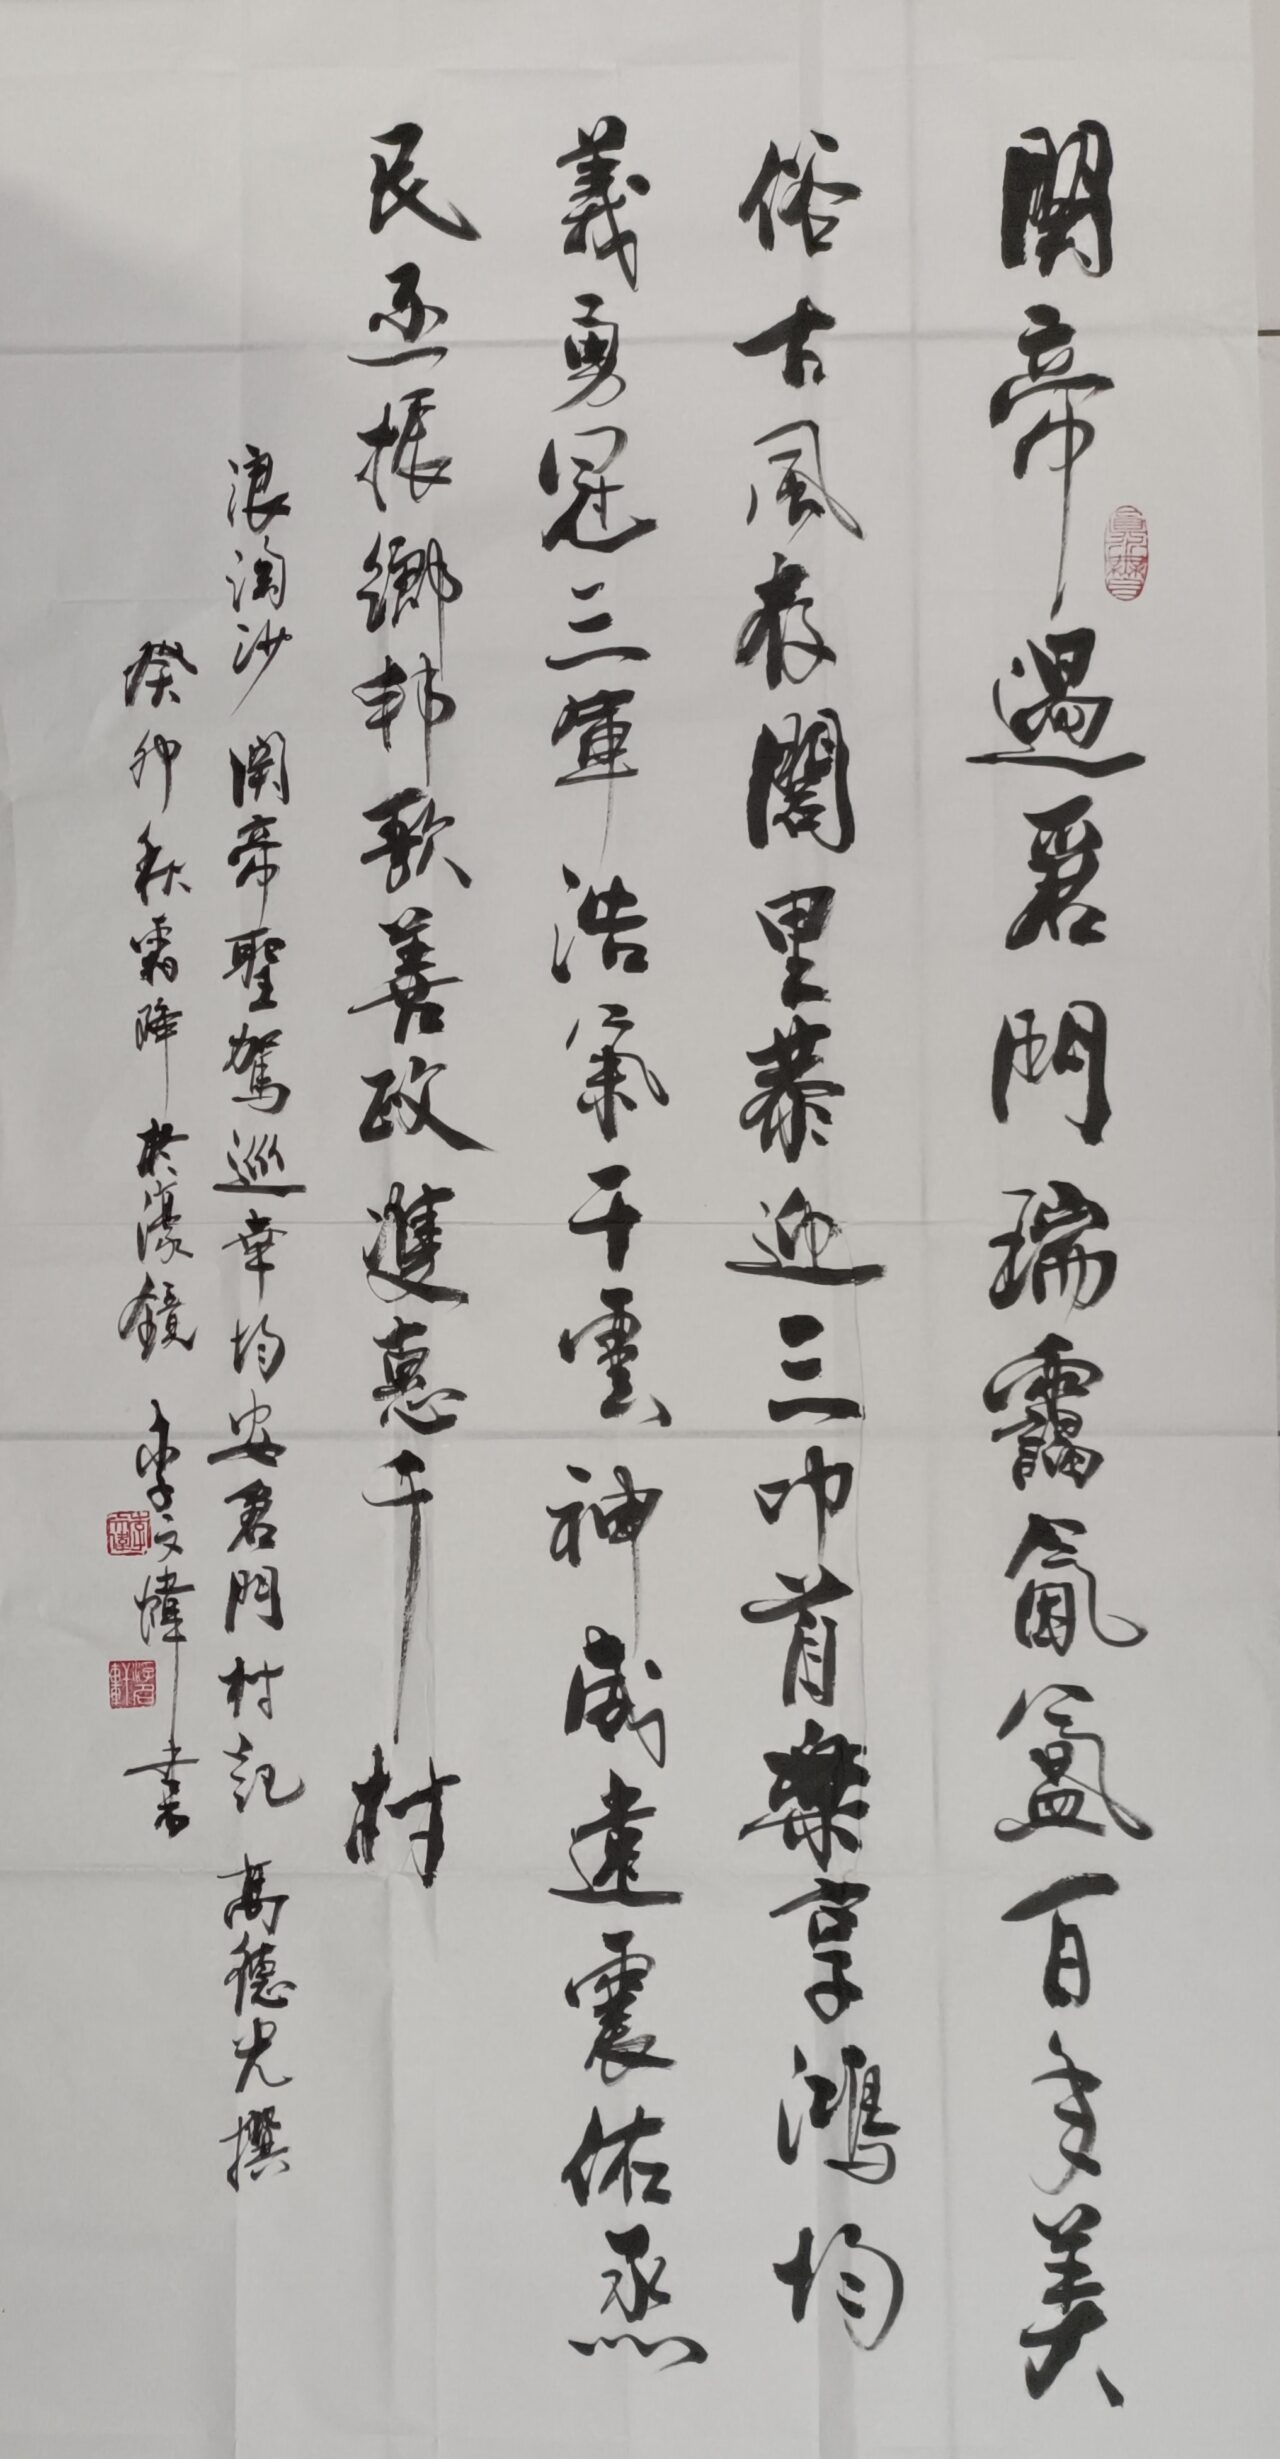 關帝過君門瑞靄氤氳百年美
俗古風存闔里恭迎三叩首樂享鴻均
義勇冠三軍浩氣干雲神威遠震佑烝
民丕振鄉邦歌善政雙惠千村
浪淘沙 關帝聖駕巡幸均安君門村記 高德光撰
癸卯秋霜降於濠鏡 李文煒書